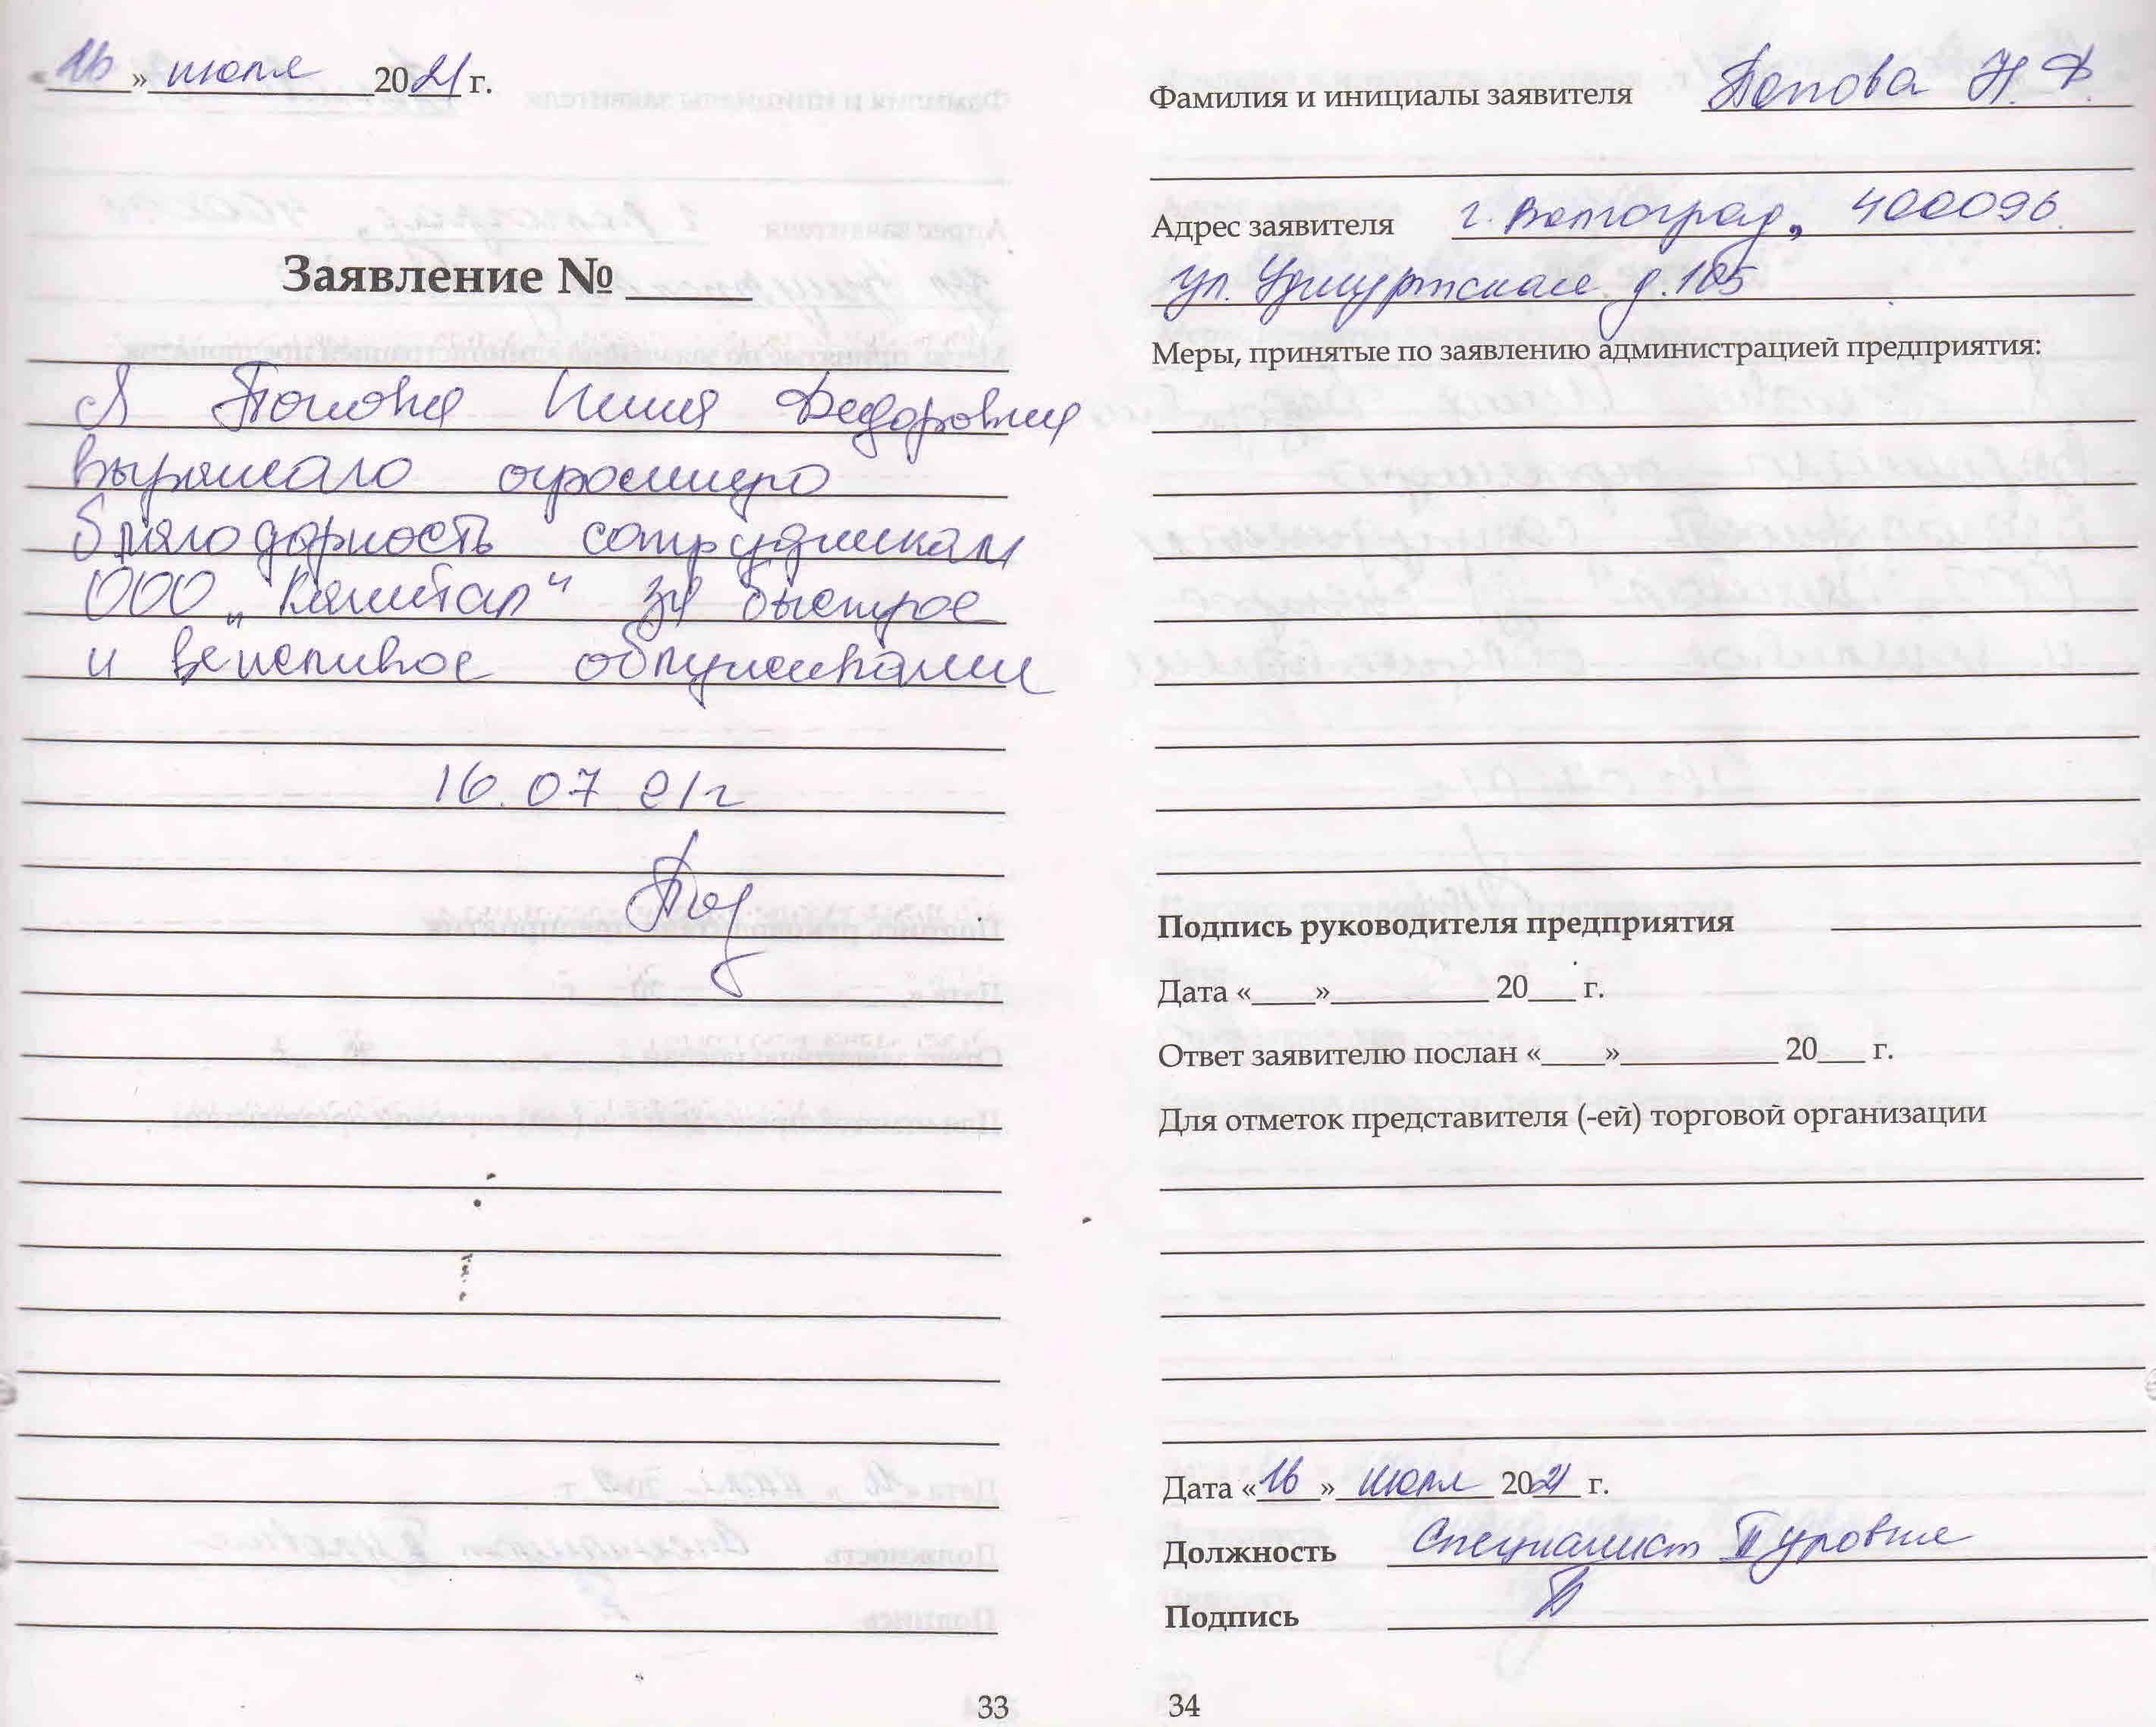 «16» июля 2021 г.
Заявление №
Я Попова Нина Федоровна
выражаю огромную
благодарность сотрудникам
ООО „Капитал“ за быстрое
и вежливое обслуживание
16.07 21г
33
Фамилия и инициалы заявителя Попова Н.Ф.
Адрес заявителя г. Волгоград, 400096
ул. Удмуртская д.105
Меры, принятые по заявлению администрацией предприятия:
Подпись руководителя предприятия
Дата «____»__________ 20___ г.
Ответ заявителю послан «____»__________ 20___ г.
Для отметок представителя (-ей) торговой организации
Дата «16» июля 2021 г.
Должность Специалист II уровня
Подпись
34